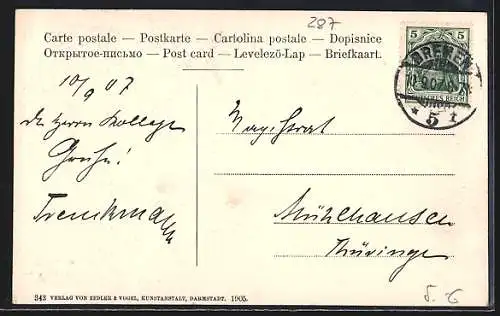 287
Carte postale — Postkarte — Cartolina postale — Dopisnice
Открытое-письмо — Post card — Levelező-Lap — Briefkaart.
5 5
BREMEN
DEUTSCHES REICH
* 5 t
10/9 07
Herrn Kollege
Gruß!
Trenkmann
Magistrat
Mühlhausen
Thüringen
343 VERLAG VON ZEDLER & VOGEL, KUNSTANSTALT, DARMSTADT. 1905.